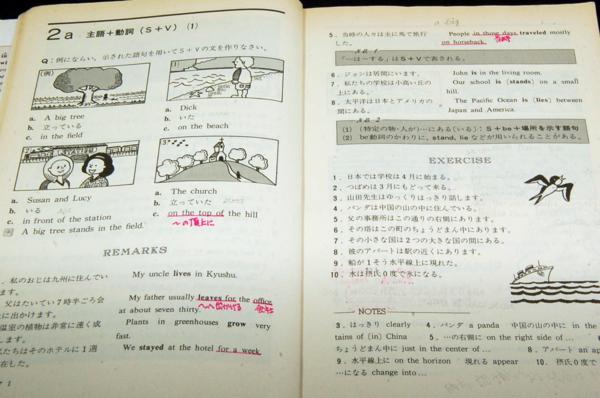 2a 主語+動詞(S+V) (1)
Q:例にならい,示された語句を用いてS+Vの文を作りなさい。
(例)
a. A big tree
b. 立っている
c. in the field
1.
a. Dick
b. いた
c. on the beach
a. Susan and Lucy
b. いる
c. in front of the station
3.
a. The church
b. 立っていた
c. on the top of the hill
〜の頂上に
A big tree stands in the field.
REMARKS
私のおじは九州に住んでい
My uncle lives in Kyushu.
父はたいてい7時半ごろ会
に出かけます。
My father usually leaves for the office
at about seven thirty.
温室の植物は非常に速く成
Plants in greenhouses grow very
fast.
たちはそのホテルに1週
We stayed at the hotel for a week.
5. 当時の人々は主に馬で旅行
した。
People in those days traveled mostly
on horseback.
「…は―する」はS+Vで表される。
6. ジョンは居間にいます。
John is in the living room.
7. 私たちの学校は小高い丘の
上にある。
Our school is (stands) on a small
hill.
8. 太平洋は日本とアメリカの
間にある。
The Pacific Ocean is (lies) between
Japan and America.
(1) (特定の物・人が)…にある(いる):S+be+場所を示す語句
(2) be動詞のかわりに, stand, lie などが用いられることがある。
EXERCISE
1. 日本では学校は4月に始まる。
2. つばめは3月にもどって来る。
3. 山田先生はゆっくりはっきり話します。
4. パンダは中国の山の中に住んでいる。
5. 父の事務所はこの通りの右側にあります。
6. その塔はこの町のちょうどまん中にあります。
7. その小さな国は2つの大きな国の間にある。
8. 彼のアパートは駅の近くにあります。
9. 船が1そう水平線上に現れた。
10. 水は摂氏0度で氷になる。
NOTES
3. はっきり clearly 4. パンダ a panda 中国の山の中に in the
tains of (in) China 5. …の右側に on the right side of …
ちょうどまん中に just in the center of … 8. アパート an ap
9. 水平線上に on the horizon 現れる appear 10. 摂氏0度で
…になる change into …